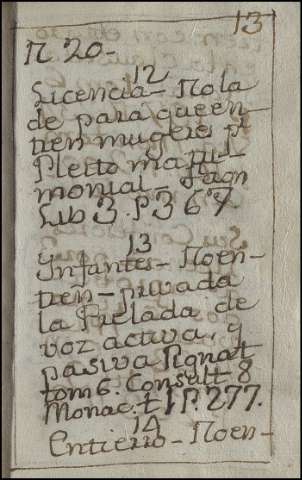 13
N. 20-
12
Licencia- No la
de para que en-
tren mugeres pr
Pleito matri-
monial-
Lib 3. P. 3 6 7
13
Ynfantes- No en-
tren- privada
la Prelada de
voz activa, y
pasiva
tom 6. Consult 8
Monac. t 1 P. 277.
14
Entierro- No en-